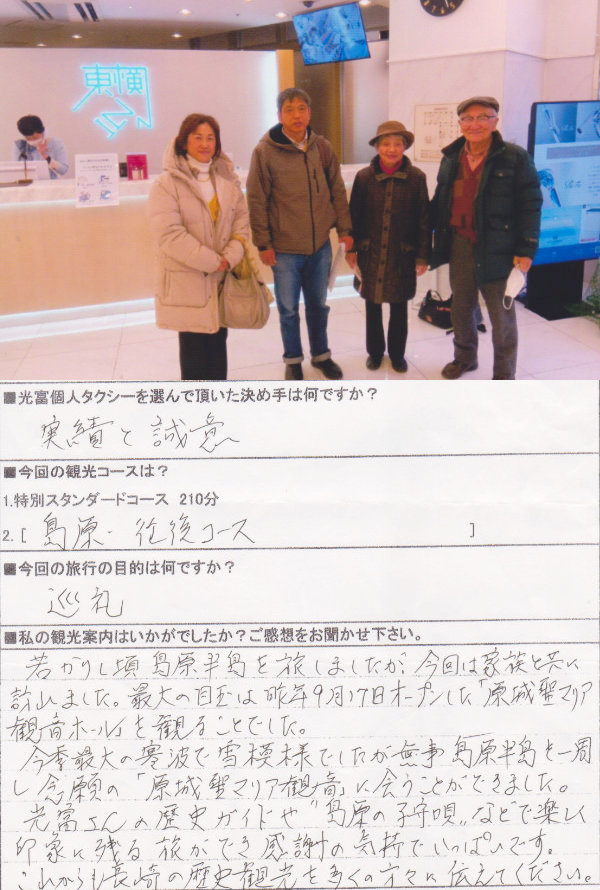 東横
INN
■光富個人タクシーを選んで頂いた決め手は何ですか？
実績と誠意
■今回の観光コースは？
1.特別スタンダードコース 210分
2.［ 島原・往復コース ］
■今回の旅行の目的は何ですか？
巡礼
■私の観光案内はいかがでしたか？ご感想をお聞かせ下さい。
若かりし頃島原半島を旅しましたが、今回は家族と共に
訪れました。最大の目玉は昨年9月17日オープンした「原城聖マリア
観音ホール」を観ることでした。
今季最大の寒波で雪模様でしたが無事島原半島を一周
し念願の「原城聖マリア観音」に会うことができました。
光富さんの歴史ガイドや"島原の子守唄"などで楽しく
印象に残る旅ができ感謝の気持でいっぱいです。
これからも長崎の歴史観光を多くの方々に伝えてください。